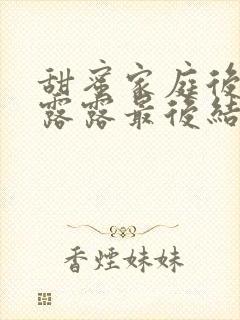 甜蜜家庭後
露露最後結
香煙妹妹